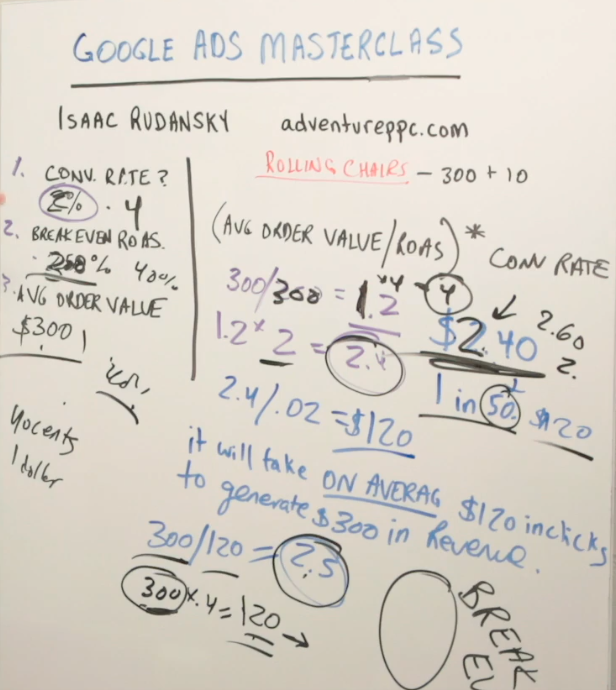 GOOGLE ADS MASTERCLASS
ISAAC RUDANSKY adventureppc.com
ROLLING CHAIRS - 300 + 10
1. CONV. RATE?
2% . 4
2. BREAKEVEN ROAS.
250% 40%
3. AVG ORDER VALUE
$300
40 cents
1 dollar
(AVG ORDER VALUE/ROAS) * CONV RATE
300/300 = 1.2
4
1.2 * 2 = 2.4
$2.40
2.60
2.
1 in 50. $120
2.4/.02 = $120
it will take ON AVERAG $120 in clicks
to generate $300 in Revenue.
300/120 = 2.5
300 x .4 = 120 →
BREAK
EV